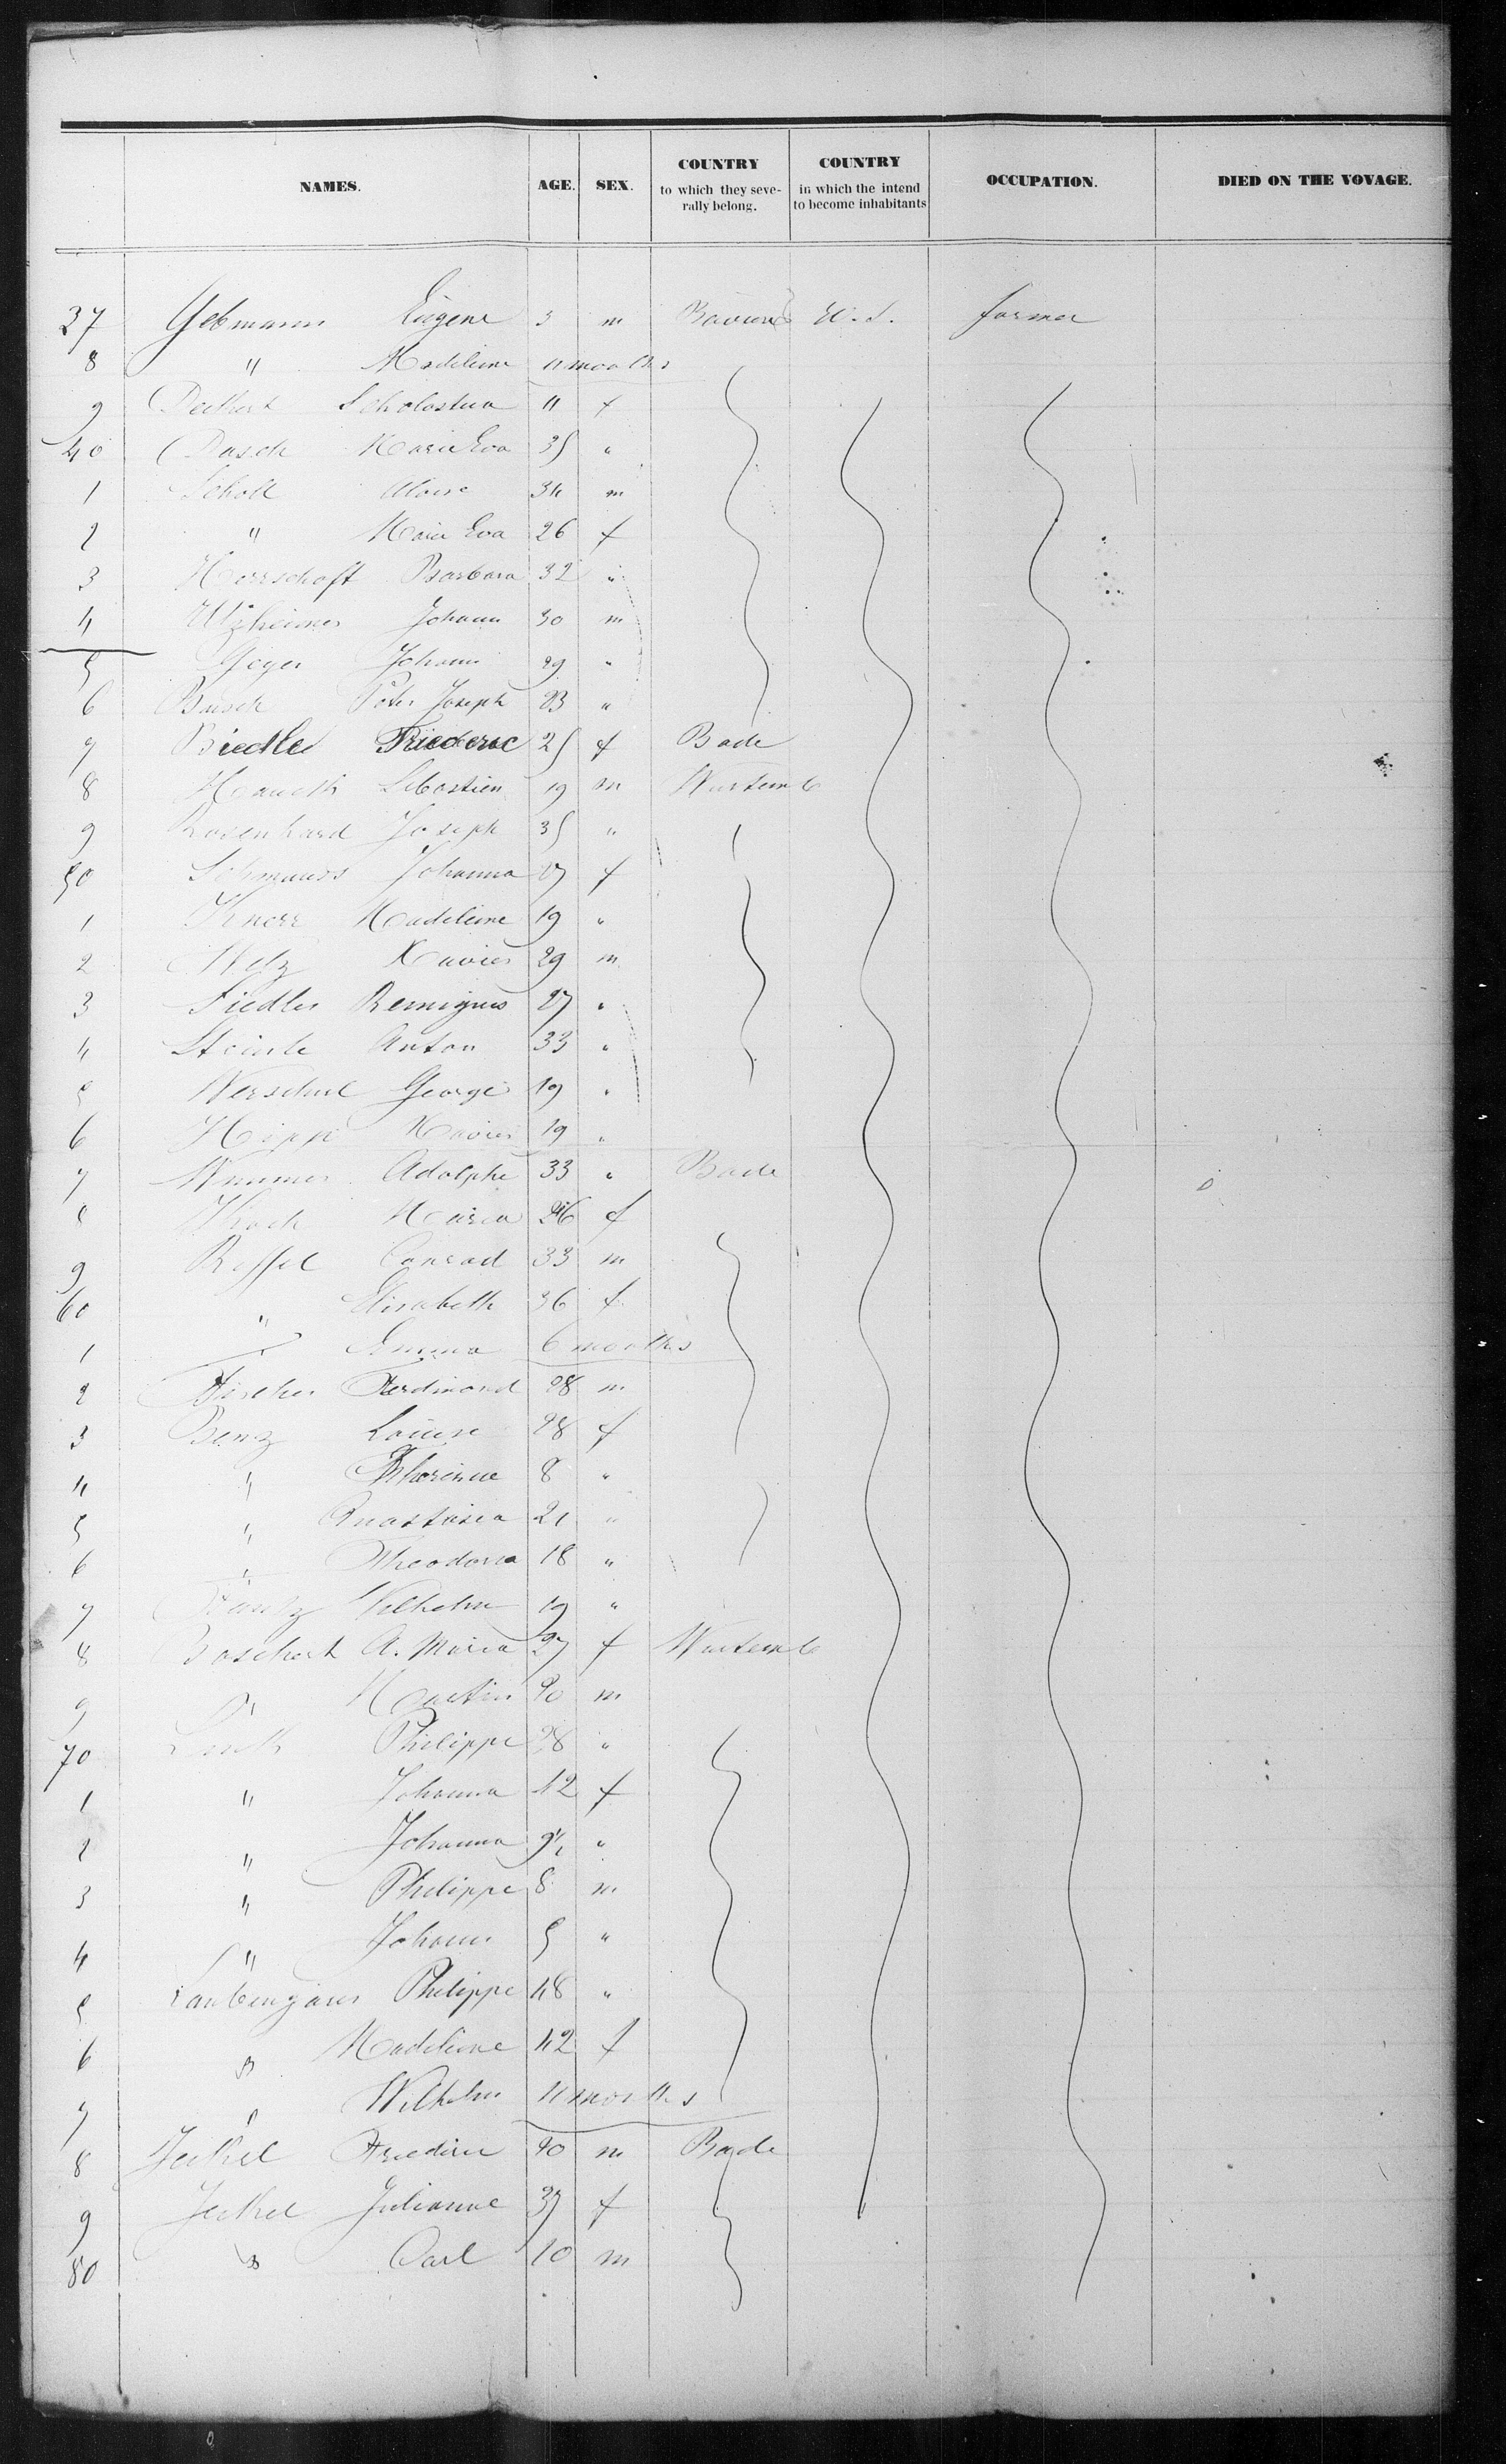 NAMES. AGE. SEX. COUNTRY to which they seve- rally belong. COUNTRY in which the intend to become inhabitants OCCUPATION. DIED ON THE VOYAGE.
37 Gebmann Eugene 3 m Baviere U.S. farmer
8 " Madeleine 11 months
9 Deckert Scholastica 11 f
40 Dasch Maria Eva 35 "
1 Scholl Aloise 34 m
2 " Maria Eva 26 f
3 Herrschaft Barbara 32 "
4 Utzheimer Johann 30 m
5 Geyer Johann 29 "
6 Busch Peter Joseph 23 "
7 Biedle Friederic 25 f Bade
8 Sebastien 19 m Wurtemb
9 Rosenhard Joseph 35 "
50 Schmauss Johanna 27 f
1 Knorr Madeleine 19 "
2 Metz Xavier 29 m
3 Fiedler Remigius 27 "
4 Steinle Anton 33 "
5 George 19 "
6 Hipp Xavier 19 "
7 Adolphe 33 " Bade
8 Koch Maria 26 f
9 Reffel Conrad 33 m
60 " Elisabeth 36 f
1 " Emma 6 months
2 Fischer Ferdinand 28 m
3 Benz Louise 28 f
4 " 8 "
5 " Anastasia 21 "
6 " Theodora 18 "
7 Wilhelm 19 "
8 Boschert A. Maria 27 f Wurtemb
9 " Martin 20 m
70 Philippe 28 "
1 " Johanna 42 f
2 " Johanna 9½ "
3 " Philippe 8 m
4 " Johann 5 "
5 Laubengaier Philippe 48 "
6 " Madeleine 42 f
7 " Wilhelm 11 months
8 Jeckel 20 m Bade
9 Jeckel Julianne 37 f
80 " Carl 10 m